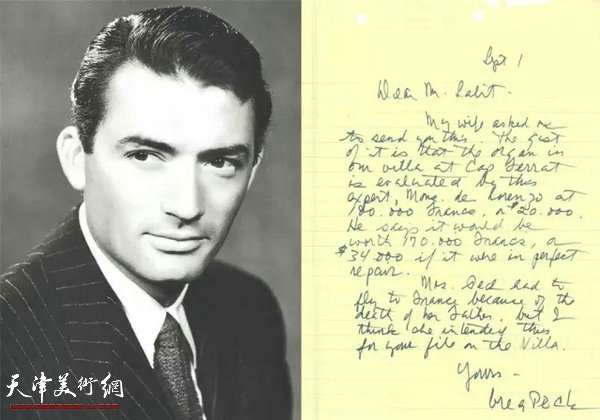 Sept 1
Dear M. Salit -
My wife asked me
to send you this. The gist
of it is that the organ in
our villa at Cap Ferrat
is evaluated by this
expert, Mons. de Lorenzo at
100.000 francs, or $20.000.
He says it would be
worth 170.000 francs, or
$34.000 if it were in perfect
repair.
Mrs. Peck had to
fly to France because of the
death of her father, but I
think she intended this
for your file on the Villa.
Yours -
Greg Peck
天津美術網